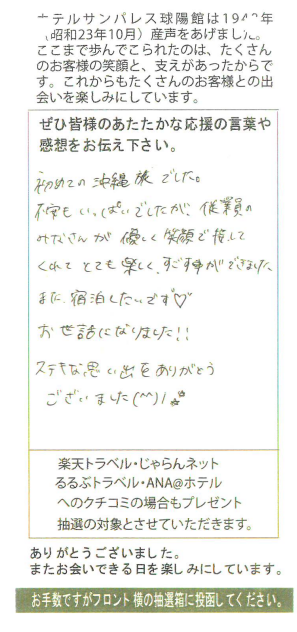 ホテルサンパレス球陽館は1948年
(昭和23年10月)産声をあげました。
ここまで歩んでこられたのは、たくさん
のお客様の笑顔と、支えがあったからで
す。これからもたくさんのお客様との出
会いを楽しみにしています。
ぜひ皆様のあたたかな応援の言葉や
感想をお伝え下さい。
初めての沖縄旅でした。
不安もいっぱいでしたが、従業員の
みなさんが優しく笑顔で接して
くれてとても楽しく、すごす事ができました
また、宿泊したいです♡
お世話になりました!!
ステキな思い出をありがとう
ございました(^^)/
楽天トラベル・じゃらんネット
るるぶトラベル・ANA@ホテル
へのクチコミの場合もプレゼント
抽選の対象とさせていただきます。
ありがとうございました。
またお会いできる日を楽しみにしています。
お手数ですがフロント横の抽選箱に投函してください。